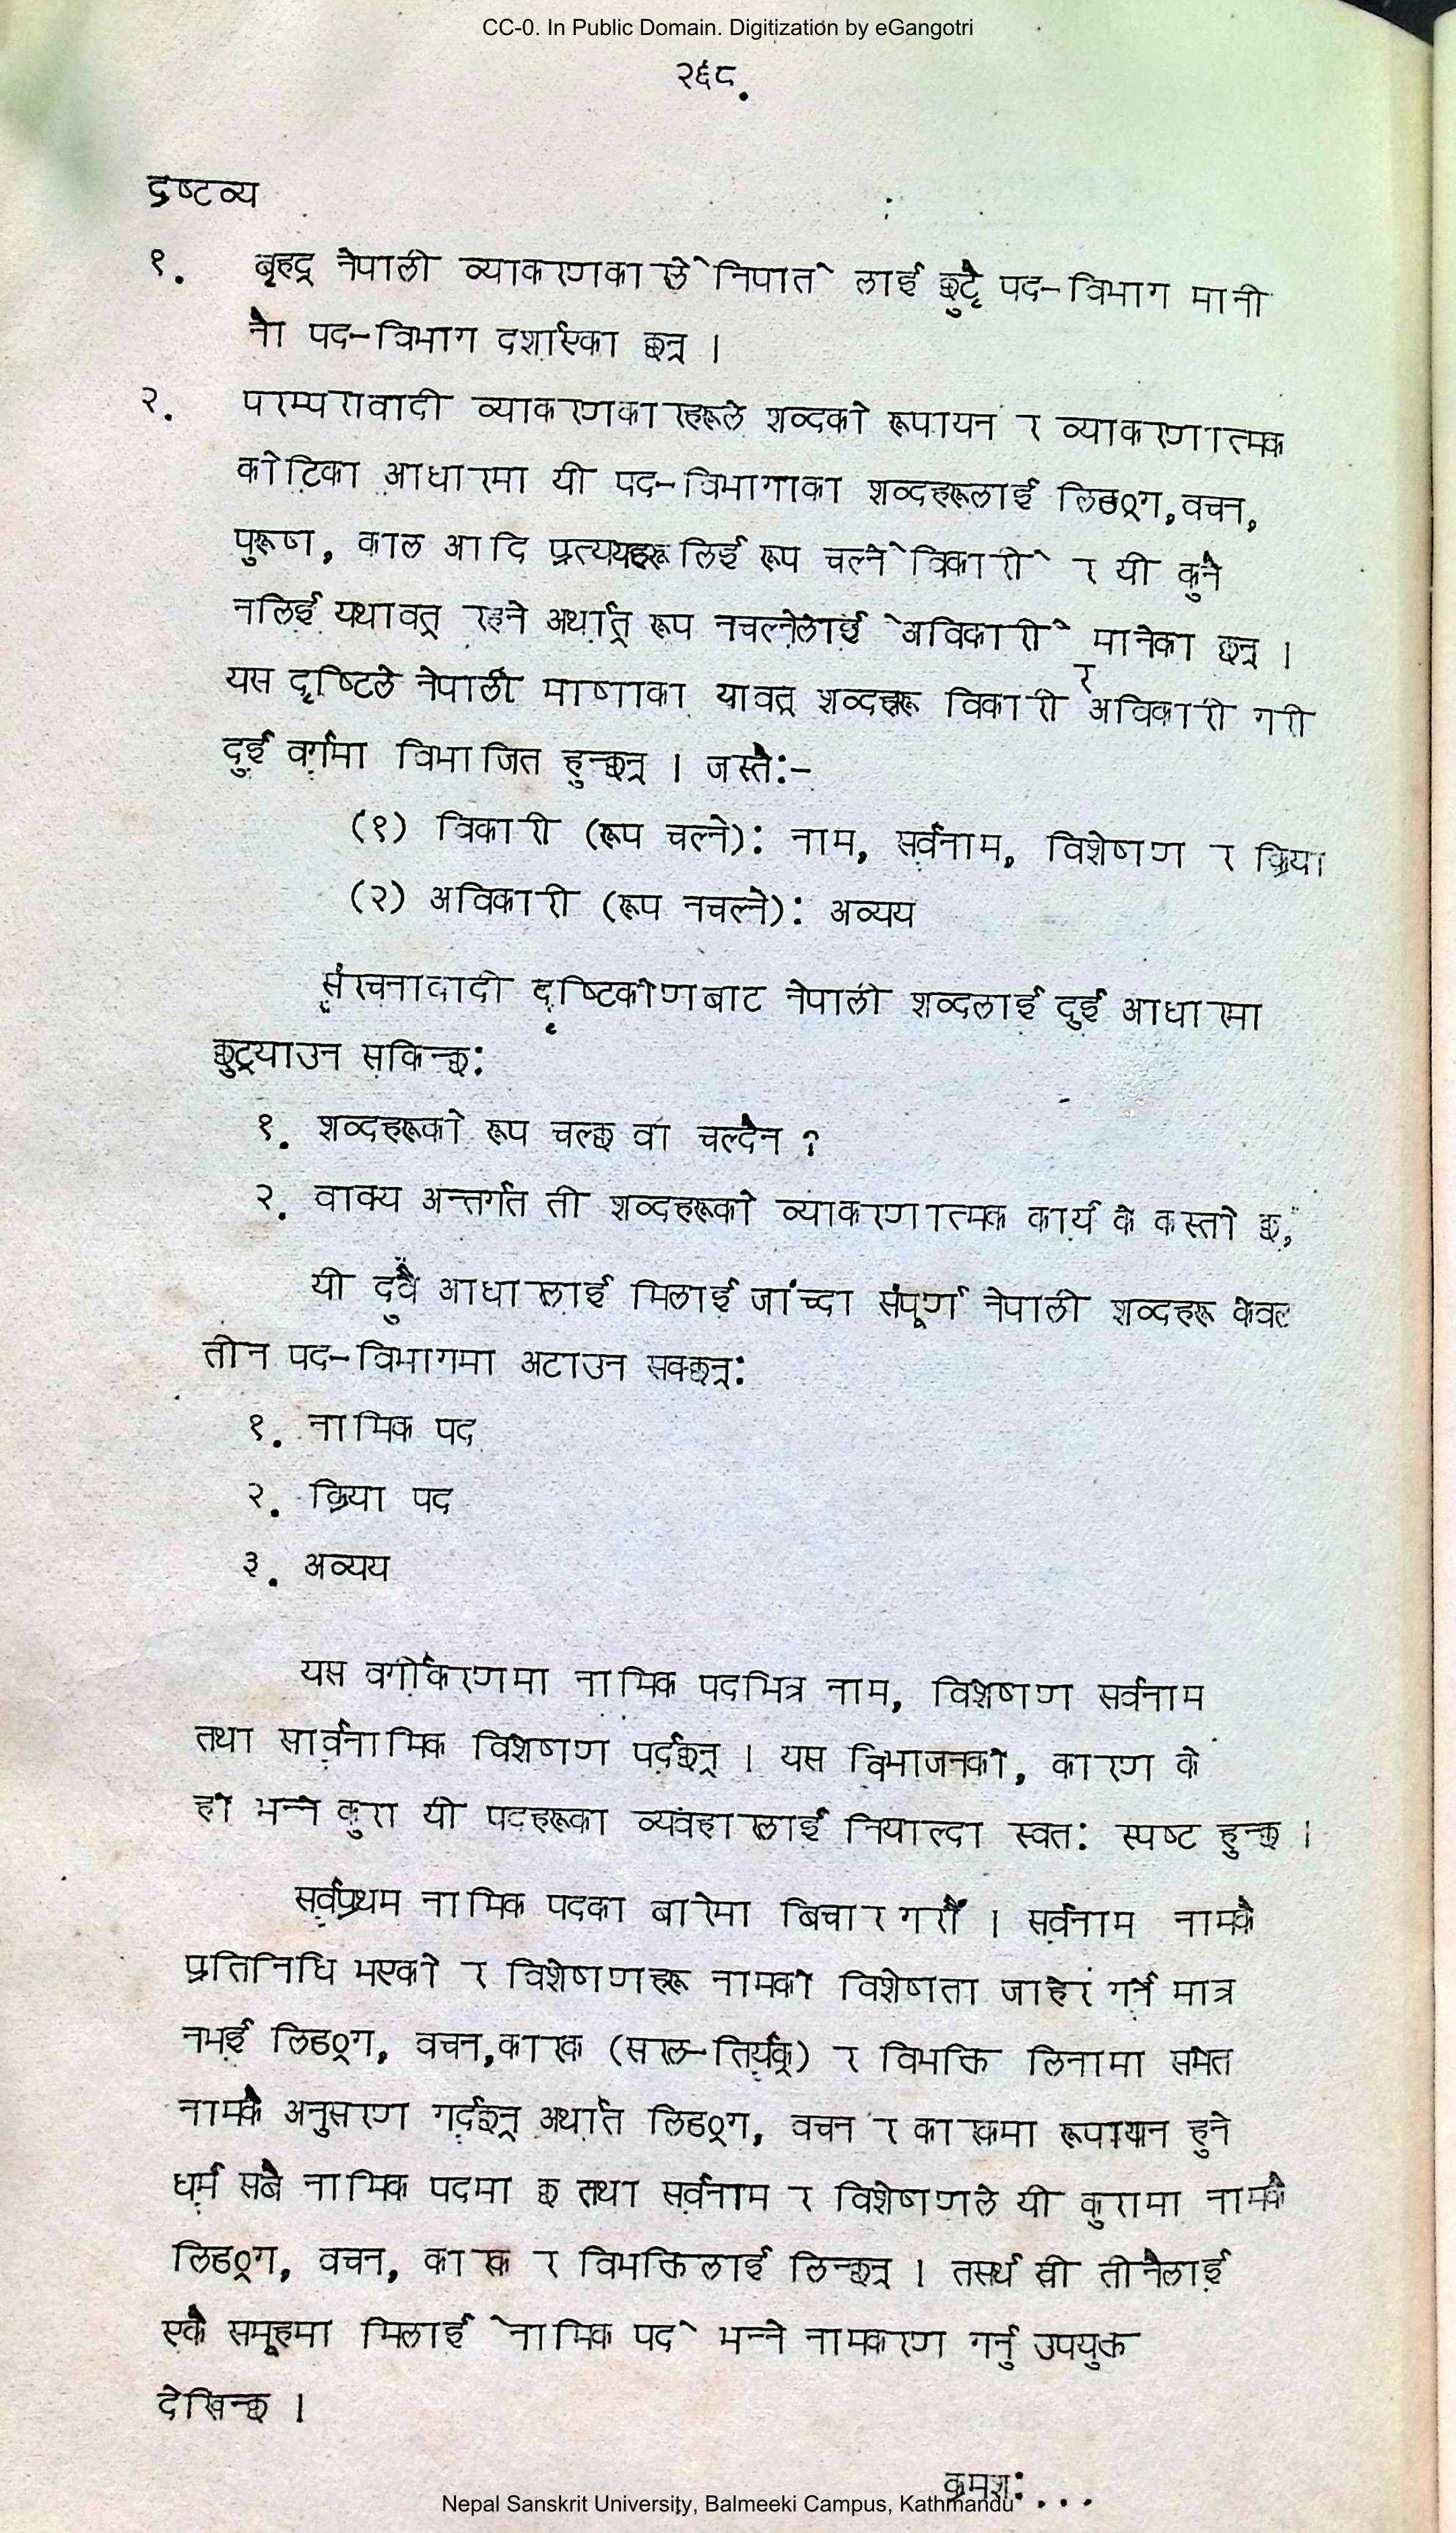 CC-0. In Public Domain. Digitization by eGangotri
२६८.
द्रष्टव्य
१. बृहद् नेपाली व्याकरणकारले `निपात` लाई छुट्टै पद-विभाग मानी
नौ पद-विभाग दर्शाएका छन् ।
२. परम्परावादी व्याकरणकारहरूले शव्दको रूपायन र व्याकरणात्मक
कोटिका आधारमा यी पद-विभागाका शव्दहरूलाई लिङ्ग, वचन,
पुरूष, काल आदि प्रत्ययहरू लिई रूप चल्ने `विकारी` र यी कुनै
नलिई यथावत् रहने अर्थात् रूप नचल्नेलाई `अविकारी` मानेका छन् ।
यस दृष्टिले नेपाली भाषाका यावत् शव्दहरू विकारी र अविकारी गरी
दुई वर्गमा विभाजित हुन्छन् । जस्तै:-
(१) विकारी (रूप चल्ने): नाम, सर्वनाम, विशेषण र क्रिया
(२) अविकारी (रूप नचल्ने): अव्यय
संरचनावादी दृष्टिकोणबाट नेपाली शव्दलाई दुई आधारमा
छुट्याउन सकिन्छ:
१. शव्दहरूको रूप चल्छ वा चल्दैन ?
२. वाक्य अन्तर्गत ती शव्दहरूको व्याकरणात्मक कार्य के कस्तो छ,
यी दुवै आधारलाई मिलाई जांच्दा संपूर्ण नेपाली शव्दहरू केवल
तीन पद-विभागमा अटाउन सक्छन्:
१. नामिक पद
२. क्रिया पद
३. अव्यय
यस वर्गीकरणमा नामिक पदभित्र नाम, विशेषण सर्वनाम
तथा सार्वनामिक विशेषण पर्दछन् । यस विभाजनको, कारण के
हो भन्ने कुरा यी पदहरूका व्यवहारलाई नियाल्दा स्वत: स्पष्ट हुन्छ ।
सर्वप्रथम नामिक पदका बारेमा बिचार गरौँ । सर्वनाम नामकै
प्रतिनिधि भएको र विशेषणहरू नामको विशेषता जाहेर गर्ने मात्र
नभई लिङ्ग, वचन, कारक (सरल-तिर्यक्) र विभक्ति लिनामा समेत
नामकै अनुसरण गर्दछन् अर्थात लिङ्ग, वचन र कारकमा रूपायन हुने
धर्म सबै नामिक पदमा छ तथा सर्वनाम र विशेषणले यी कुरामा नामकै
लिङ्ग, वचन, कारक र विभक्तिलाई लिन्छन् । तसर्थ यी तीनैलाई
एकै समूहमा मिलाई `नामिक पद` भन्ने नामकरण गर्नु उपयुक्त
देखिन्छ ।
क्रमश:...
Nepal Sanskrit University, Balmeeki Campus, Kathmandu